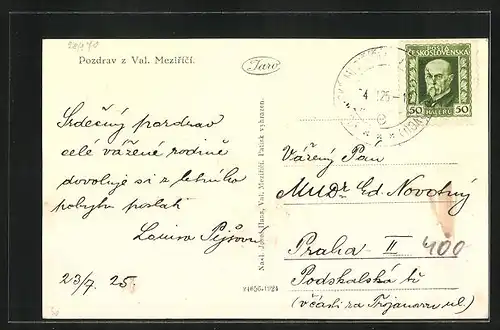 28/470
Pozdrav z Val. Meziříčí.
Taro
POŠTA
ČESKOSLOVENSKÁ
50 HALÉŘŮ 50
25
Srdečný pozdrav
celé vážené rodině
dovoluje si z letního
pobytu poslati
Louisa
23/7. 25.
Nakl. Josef Hans, Val. Meziříčí. Patisk vyhrazen.
24656 1924
Vážený Pan
MUDr Ed. Novotný
Praha II
400
Podskalská tř
(v části za Trojanovou ul.)